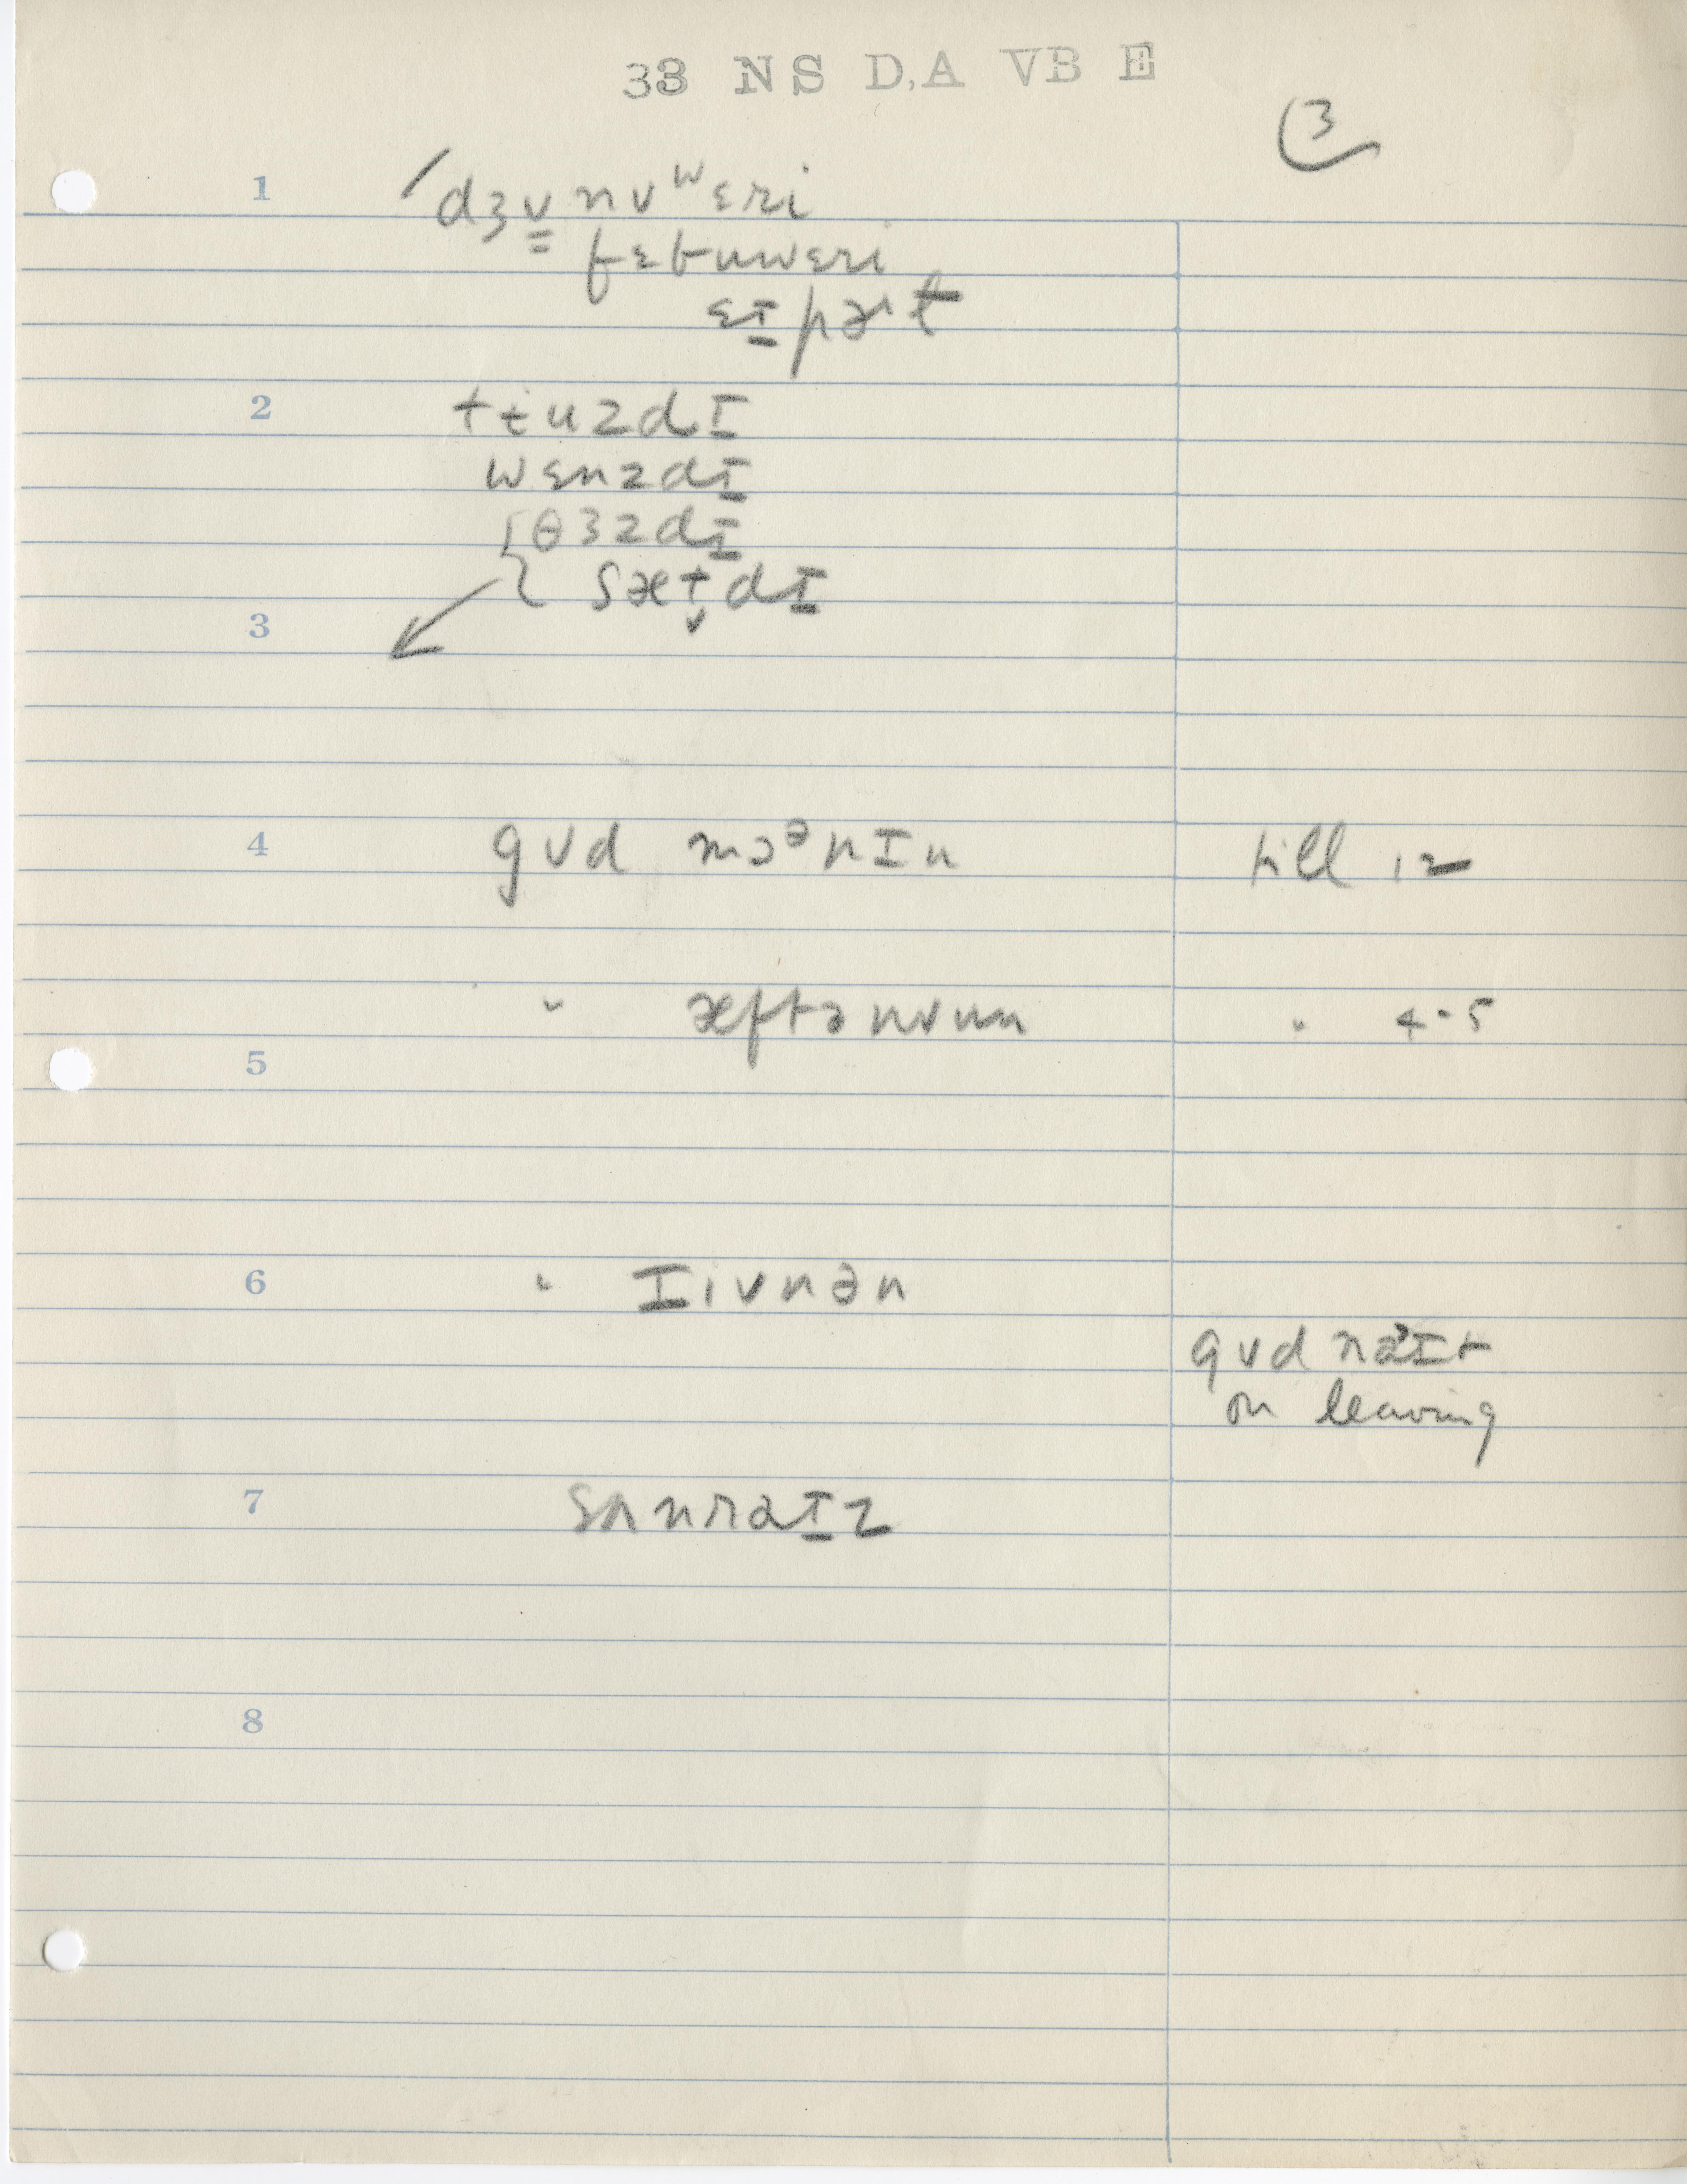 33 NS D,A VB E
3
1 dʒʊnʊʷɛri
fɛbuwɛri
ɛɪprəlt
2 tɨuzdɪ
wɛnzdɪ
θɜzdɪ
sætdɪ
3
4 gʊd mɔᵊnɪn till 12
" æftənʊun " 4-5
5
6 " ɪivnən
gʊd naᵊɪt
on leaving
7 sʌnraɪz
8